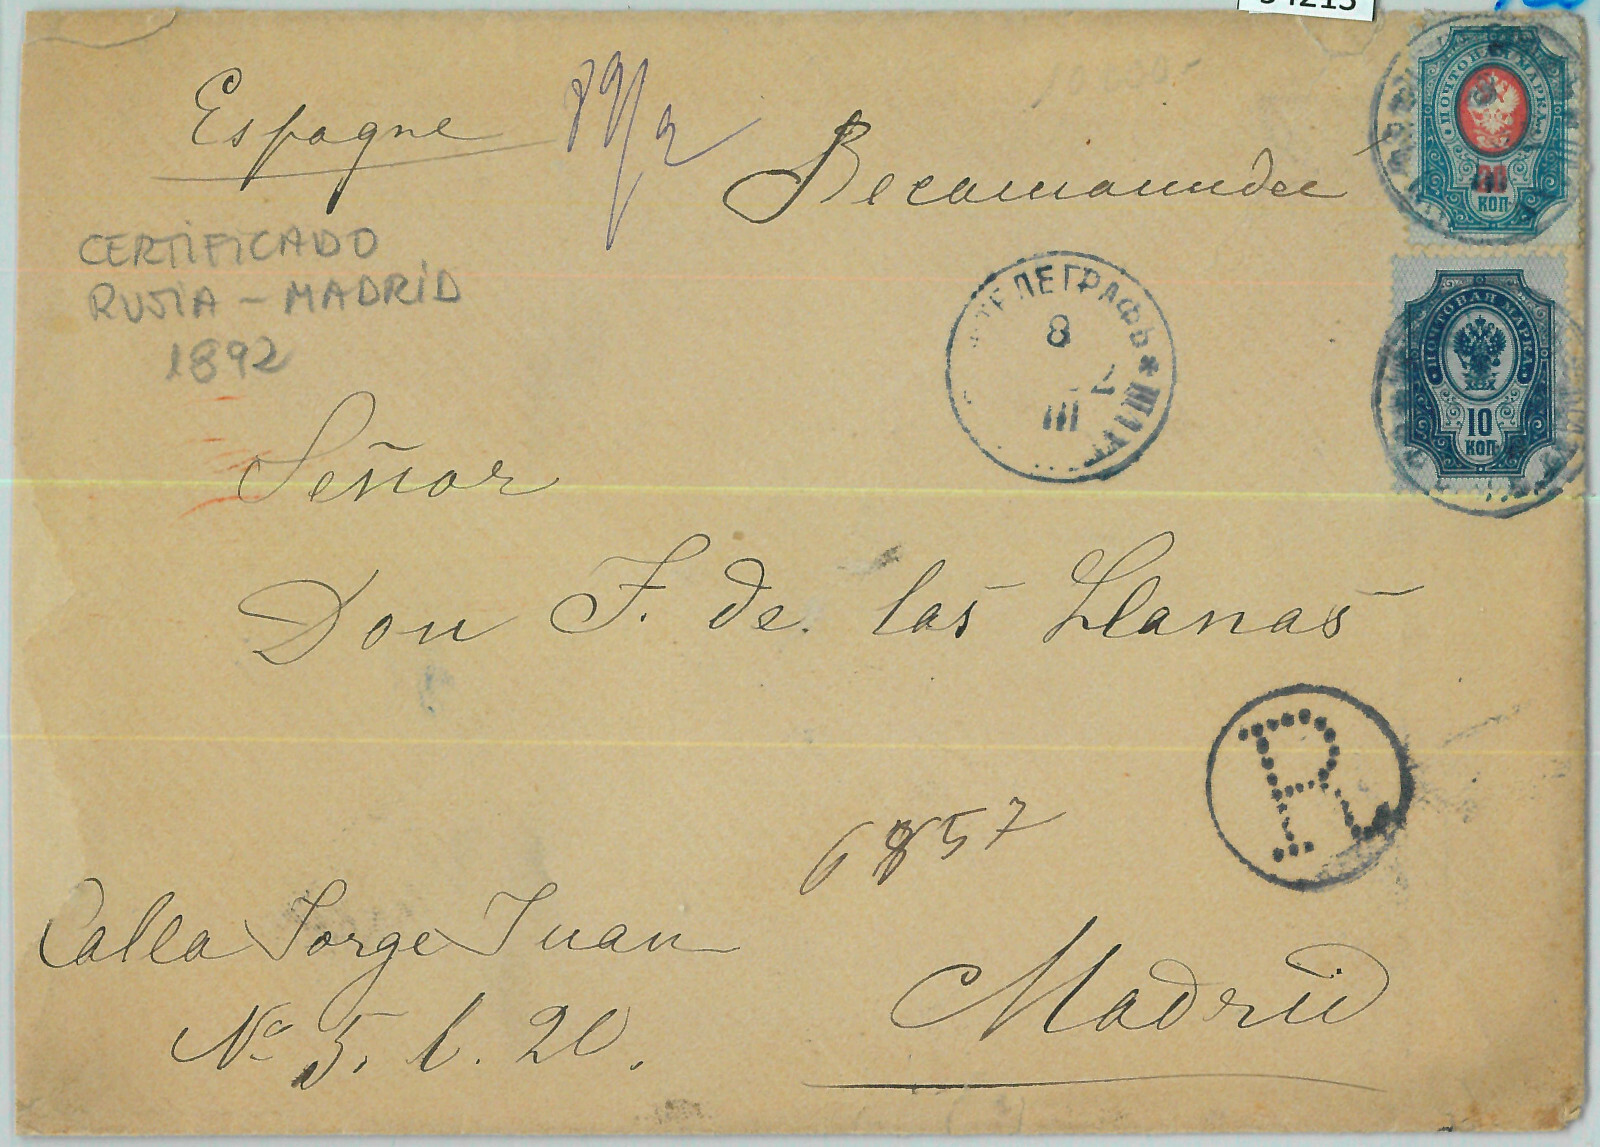 Espagne
89/2
Recommandée
CERTIFICADO
RUSIA - MADRID
1892
ТЕЛЕГРАФЪ *
8
2
III
ПОЧТОВАЯ МАРКА
20
КОП
ПОЧТОВАЯ МАРКА
10
КОП
Señor
Don F. de las Llanas
R
6857
Calla Jorge Juan
No 5. 1. 20.
Madrid